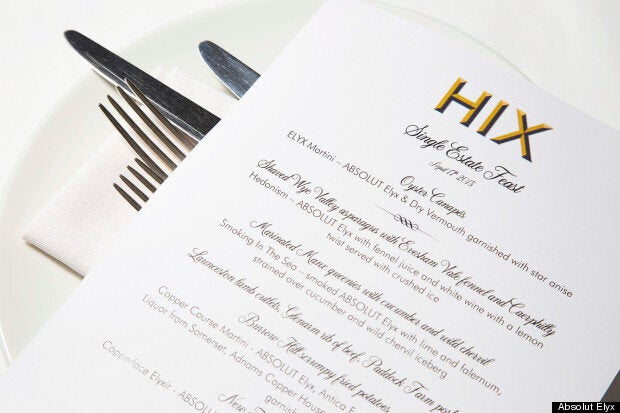 HIX
Single Estate Feast
April 17th 2013
Oyster Canapés
ELYX Martini – ABSOLUT Elyx & Dry Vermouth garnished with star anise
Shaved Wye Valley asparagus with Evesham Vale fennel and Caerphilly
Hedonism – ABSOLUT Elyx with fennel juice and white wine with a lemon
twist served with crushed ice
Marinated Manx queenies with cucumber and wild chervil
Smoking In The Sea – smoked ABSOLUT Elyx with lime and falernum,
strained over cucumber and wild chervil iceberg
Launceston lamb cutlets, Glenarm rib of beef, Paddock Farm
Barrow Hill scrumpy fried potatoes
Copper Course Martini - ABSOLUT Elyx, Antica F
Liquor from Somerset, Adnams Copper House
Copperface Elyxir - ABSOLUT
New
Absolut Elyx